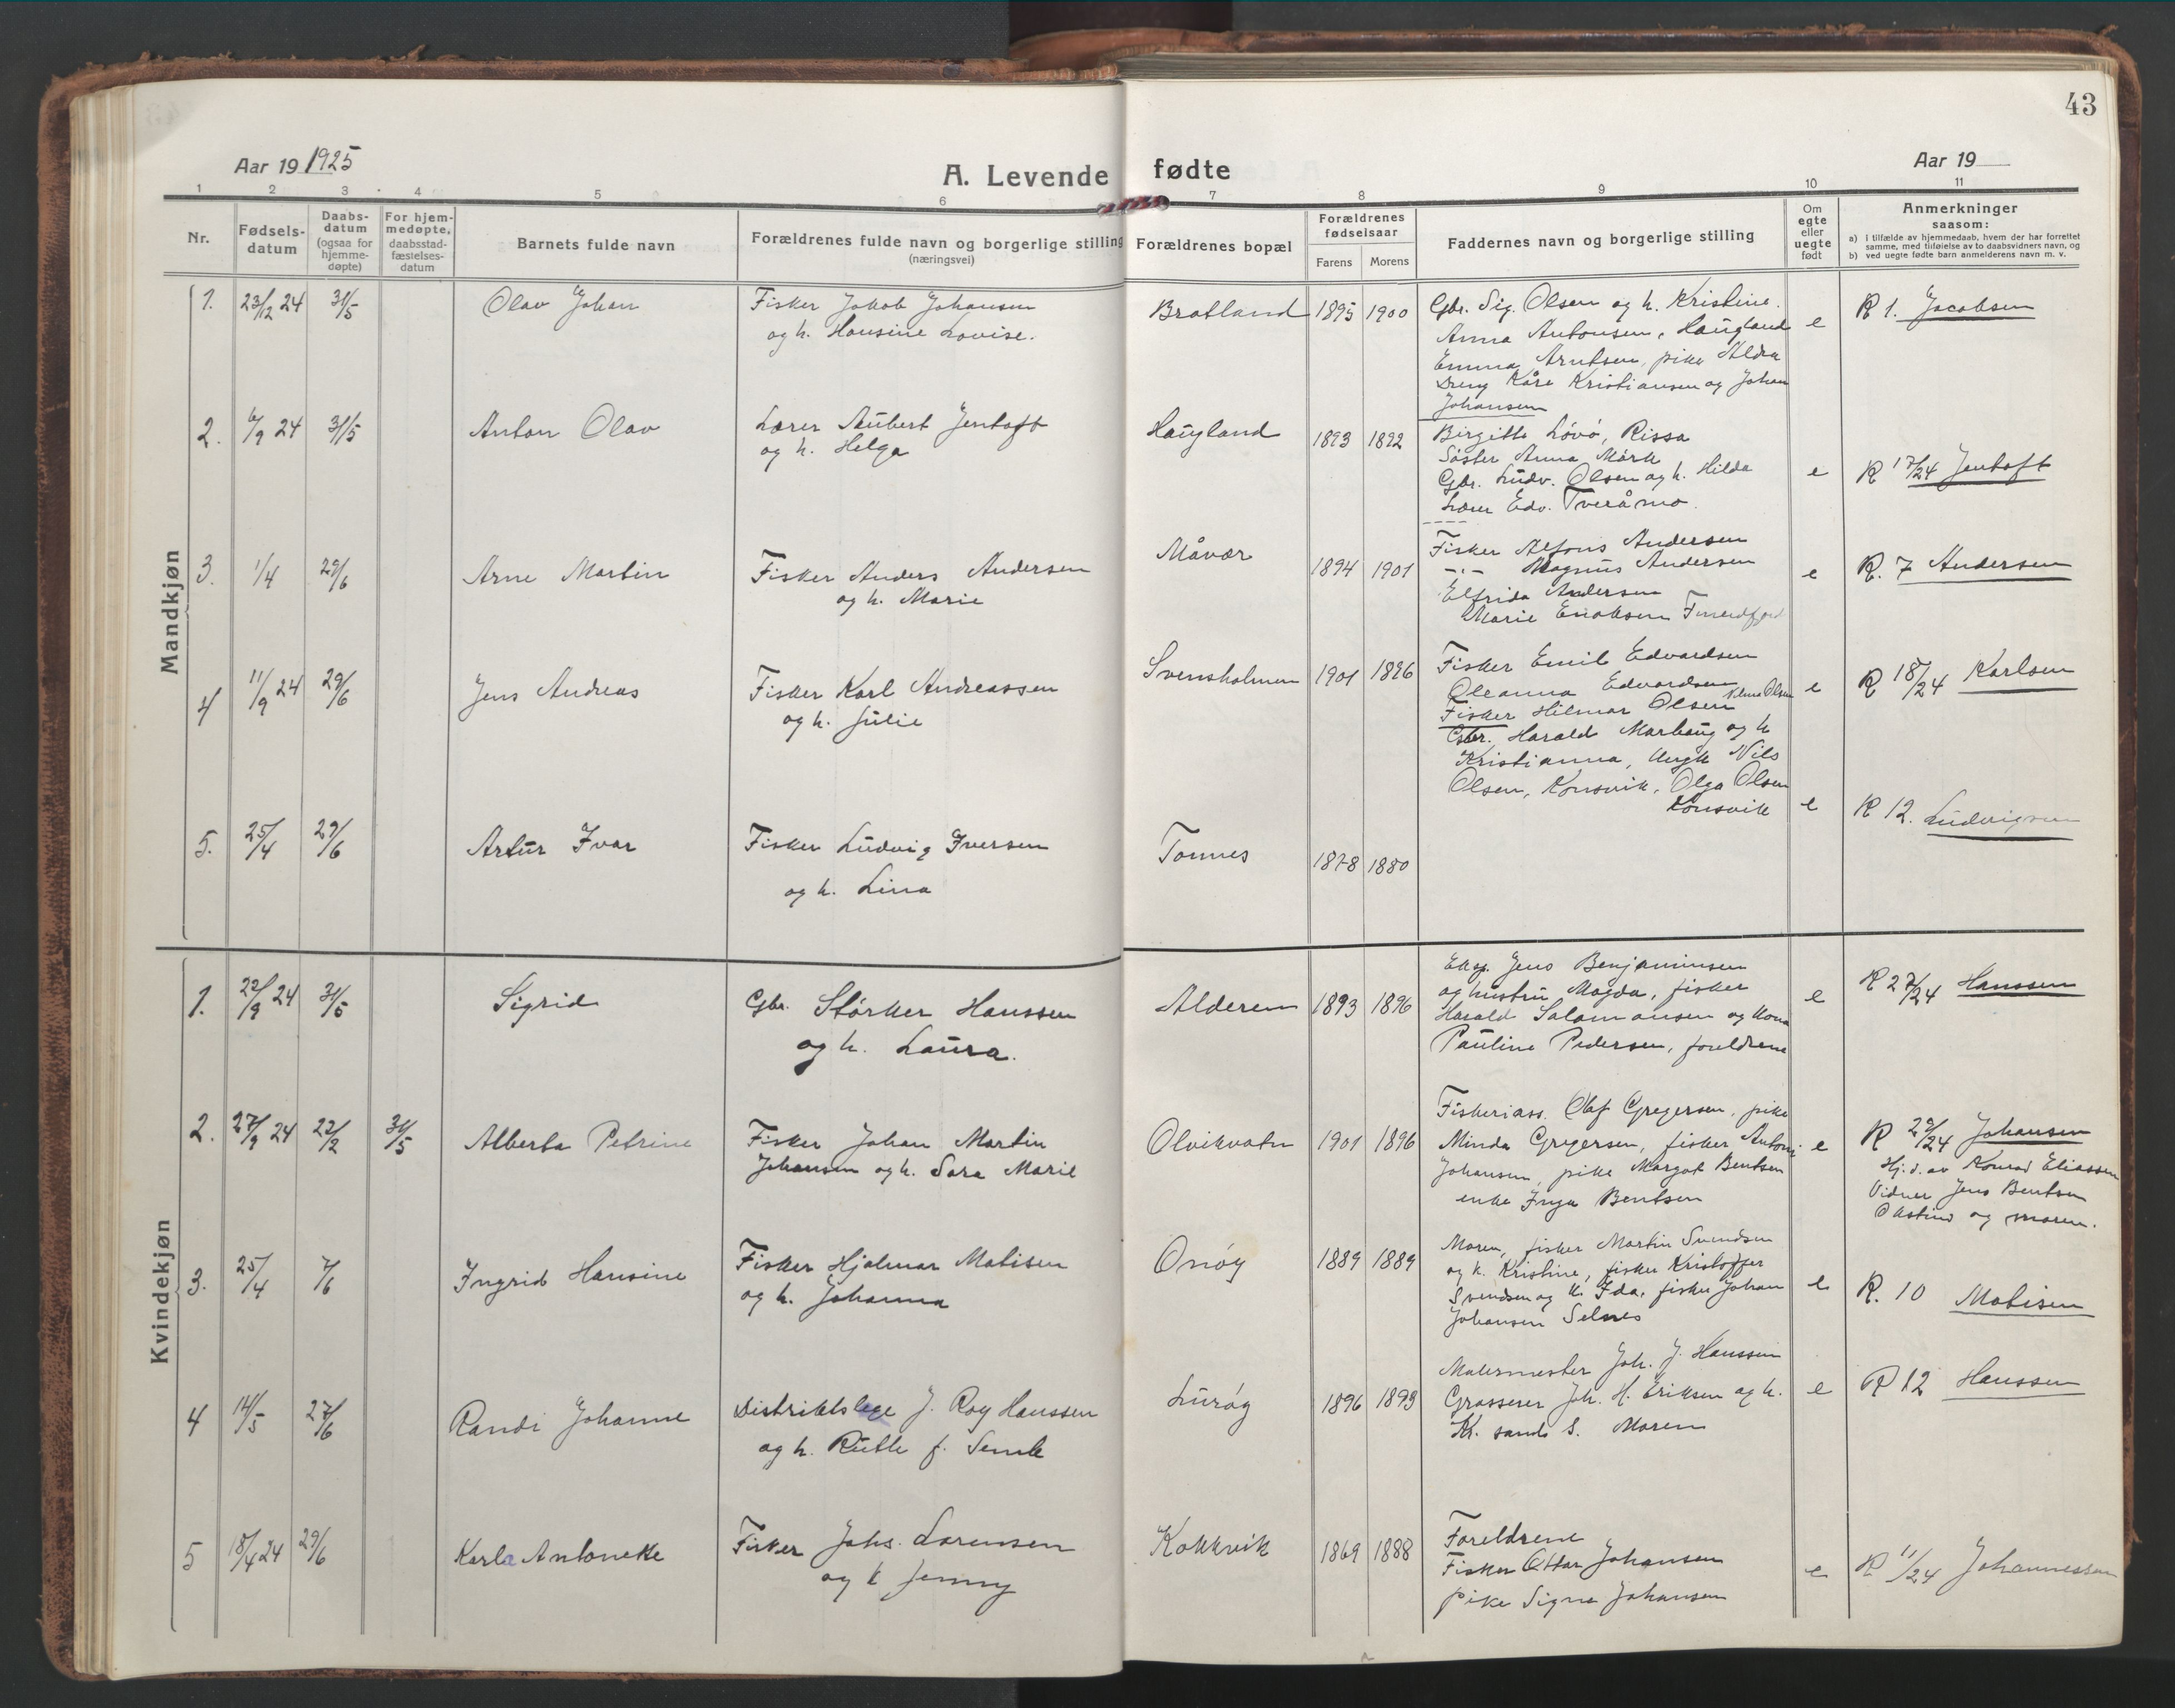 43
Aar 19 1925
A. Levende fødte
Aar 19
1 2 3 4 5 6 7 8 9 10 11
Nr.
Fødsels-
datum
Daabs-
datum
(ogsaa for
hjemme-
døpte)
For hjem-
medøpte,
daabsstad-
fæstelses-
datum
Barnets fulde navn
Forældrenes fulde navn og borgerlige stilling
(næringsvei)
Forældrenes bopæl
Forældrenes
fødselsaar
Farens Morens
Faddernes navn og borgerlige stilling
Om
egte
eller
uegte
født
Anmerkninger
saasom:
a) i tilfælde av hjemmedaab, hvem der har forrettet
samme, med tilføielse av to daabsvidners navn, og
b) ved uegte fødte barn anmelderens navn m. v.
Mandkjøn
1. 23/12 24 31/5 Olav Johan
Fisker Jakob Johansen
og h. Hansine Lovise.
Bratland 1895 1900
Gbr. Sig. Olsen og h. Kristine.
Anna Antonsen, Haugland
Emma Arntsen, pike Aldra
Dreng Kåre Kristiansen og Johan
Johansen
e R 1. Jacobsen
2. 6/9 24 31/5 Anton Olav
Lærer Aubert Jentoft
og h. Helga
Haugland 1893 1892
Birgitte Løvø, Rissa
Søster Anna Mørk
Gbr. Ludv. Olsen og h. Hilda
Lærer Edv. Tveråmo.
e R 17/24 Jentoft
3. 1/4 29/6 Arne Martin
Fisker Anders Andersen
og h. Marie
Måvær 1894 1901
Fisker Alfons Andersen
-"- Magnus Andersen
Elfrida Andersen
Marie Enoksen
e R. 7 Andersen
4 11/9 24 29/6 Jens Andreas
Fisker Karl Andreassen
og h. Julie
Svensholmen 1901 1896
Fisker Emil Edvardsen
Oleanna Edvardsen
Fisker Hilmar Olsen
e R 18/24 Karlsen
5. 25/4 29/6 Artur Ivar
Fisker Ludvig Iversen
og h. Lina
Tonnes 1878 1880
Gbr. Harald Marhaug og h
Kristianna, Ungk Nils
Olsen, Konsvik, Olga Olsen
Konsvik
e R 12. Ludvigsen
Kvindekjøn
1. 22/9 24 31/5 Sigrid
Gbr. Størker Hanssen
og h. Laura.
Alderen 1893 1896
Eksp. Jens Benjaminsen
og hustru Magda, fisker
Harald Salamonsen og kona
Pauline Pedersen, foreldrene
e R 27/24 Hanssen
2. 27/9 24 22/2 31/5 Alberta Petrine
Fisker Johan Martin
Johansen og h. Sara Marie
Olvikvatn 1901 1896
Fiskeriass. Olaf Gregersen, pike
Minda Gregersen, fisker Antoni
Johansen, pike Margot Bentsen
enke Inga Bentsen
e R 29/24 Johansen
Hj. d. av Konrad Eliassen
Vidner Jens Bentsen
og moren.
3. 25/4 7/6 Ingrid Hansine
Fisker Hjalmar Matisen
og h. Johanna
Onøy 1889 1889
Moren, fisker Martin Svendsen
og h. Kristine, fisker Kristoffer
Svendsen og h. Ida, fisker Johan
Johansen Selnes
e R. 10 Matisen
4 14/5 27/6 Randi Johanne
Distriktslege J. Roy Hanssen
og h. Ruth f. Semb
Lurøy 1896 1899
Malermester Joh. J. Hanssen
Grosserer Joh. H. Eriksen og h.
Kr. sand S. Moren
e R 12 Hanssen
5 18/4 24 29/6 Karla Antoneke
Fisker Johs. Lorensen
og h Jenny
Kokkvik 1869 1888
Foreldrene
Fisker Ottar Johansen
pike Signe Johansen
e R 11/24 Johannessen